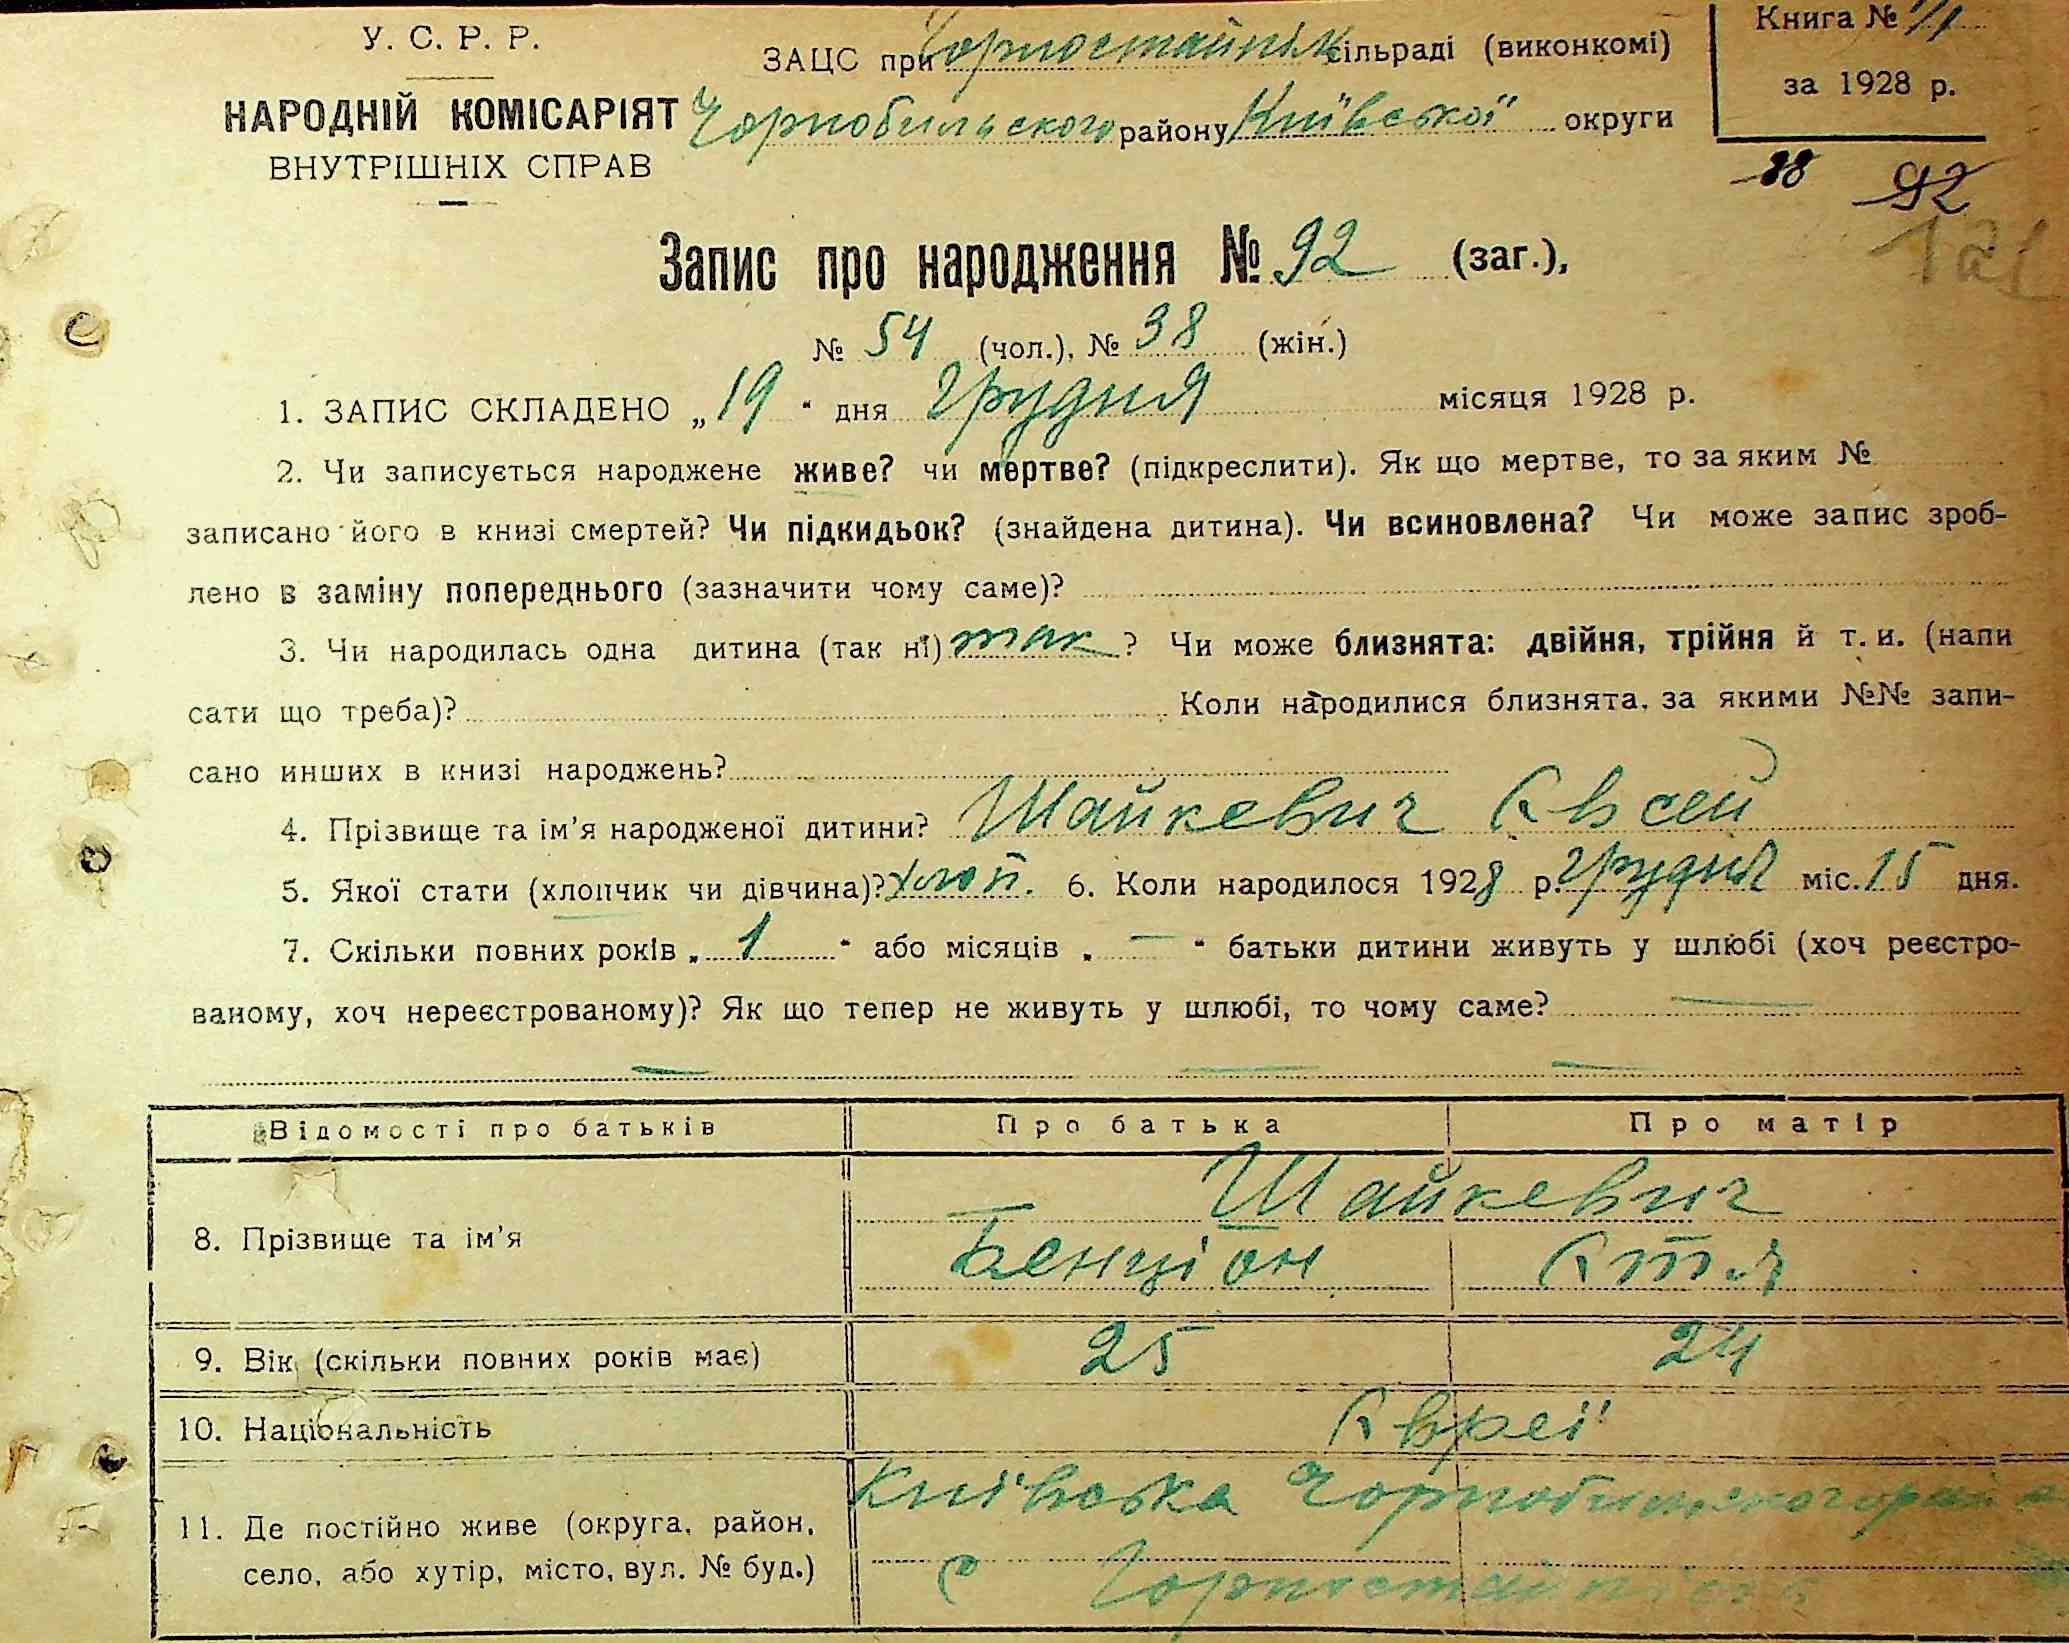 У. С. Р. Р.
НАРОДНІЙ КОМІСАРІЯТ
ВНУТРІШНІХ СПРАВ
ЗАЦС при Горностайпіль сільраді (виконкомі)
Чорнобильского району Київської округи
Книга №
за 1928 р.
88 92
121
Запис про народження № 92 (заг.),
№ 54 (чол.), № 38 (жін.)
1. ЗАПИС СКЛАДЕНО „19“ дня грудня місяця 1928 р.
2. Чи записується народжене живе? чи мертве? (підкреслити). Як що мертве, то за яким №
записано його в книзі смертей? Чи підкидьок? (знайдена дитина). Чи всиновлена? Чи може запис зроб-
лено в заміну попереднього (зазначити чому саме)?
3. Чи народилась одна дитина (так ні) так? Чи може близнята: двійня, трійня й т. и. (напи
сати що треба)? Коли народилися близнята, за якими №№ запи-
сано инших в книзі народжень?
4. Прізвище та ім’я народженої дитини? Шайкевич Євсей
5. Якої стати (хлопчик чи дівчина)? хлоп. 6. Коли народилося 1928 р. грудня міс. 15 дня.
7. Скільки повних років „1“ або місяців „—“ батьки дитини живуть у шлюбі (хоч реєстро-
ваному, хоч нереєстрованому)? Як що тепер не живуть у шлюбі, то чому саме? —
— — —
Відомості про батьків Про батька Про матір
8. Прізвище та ім’я Шайкевич
Бенціон Етя
9. Вік (скільки повних років має) 25 24
10. Національність Євреї
11. Де постійно живе (округа, район, Київська Чорнобильского
село, або хутір, місто, вул. № буд.) с